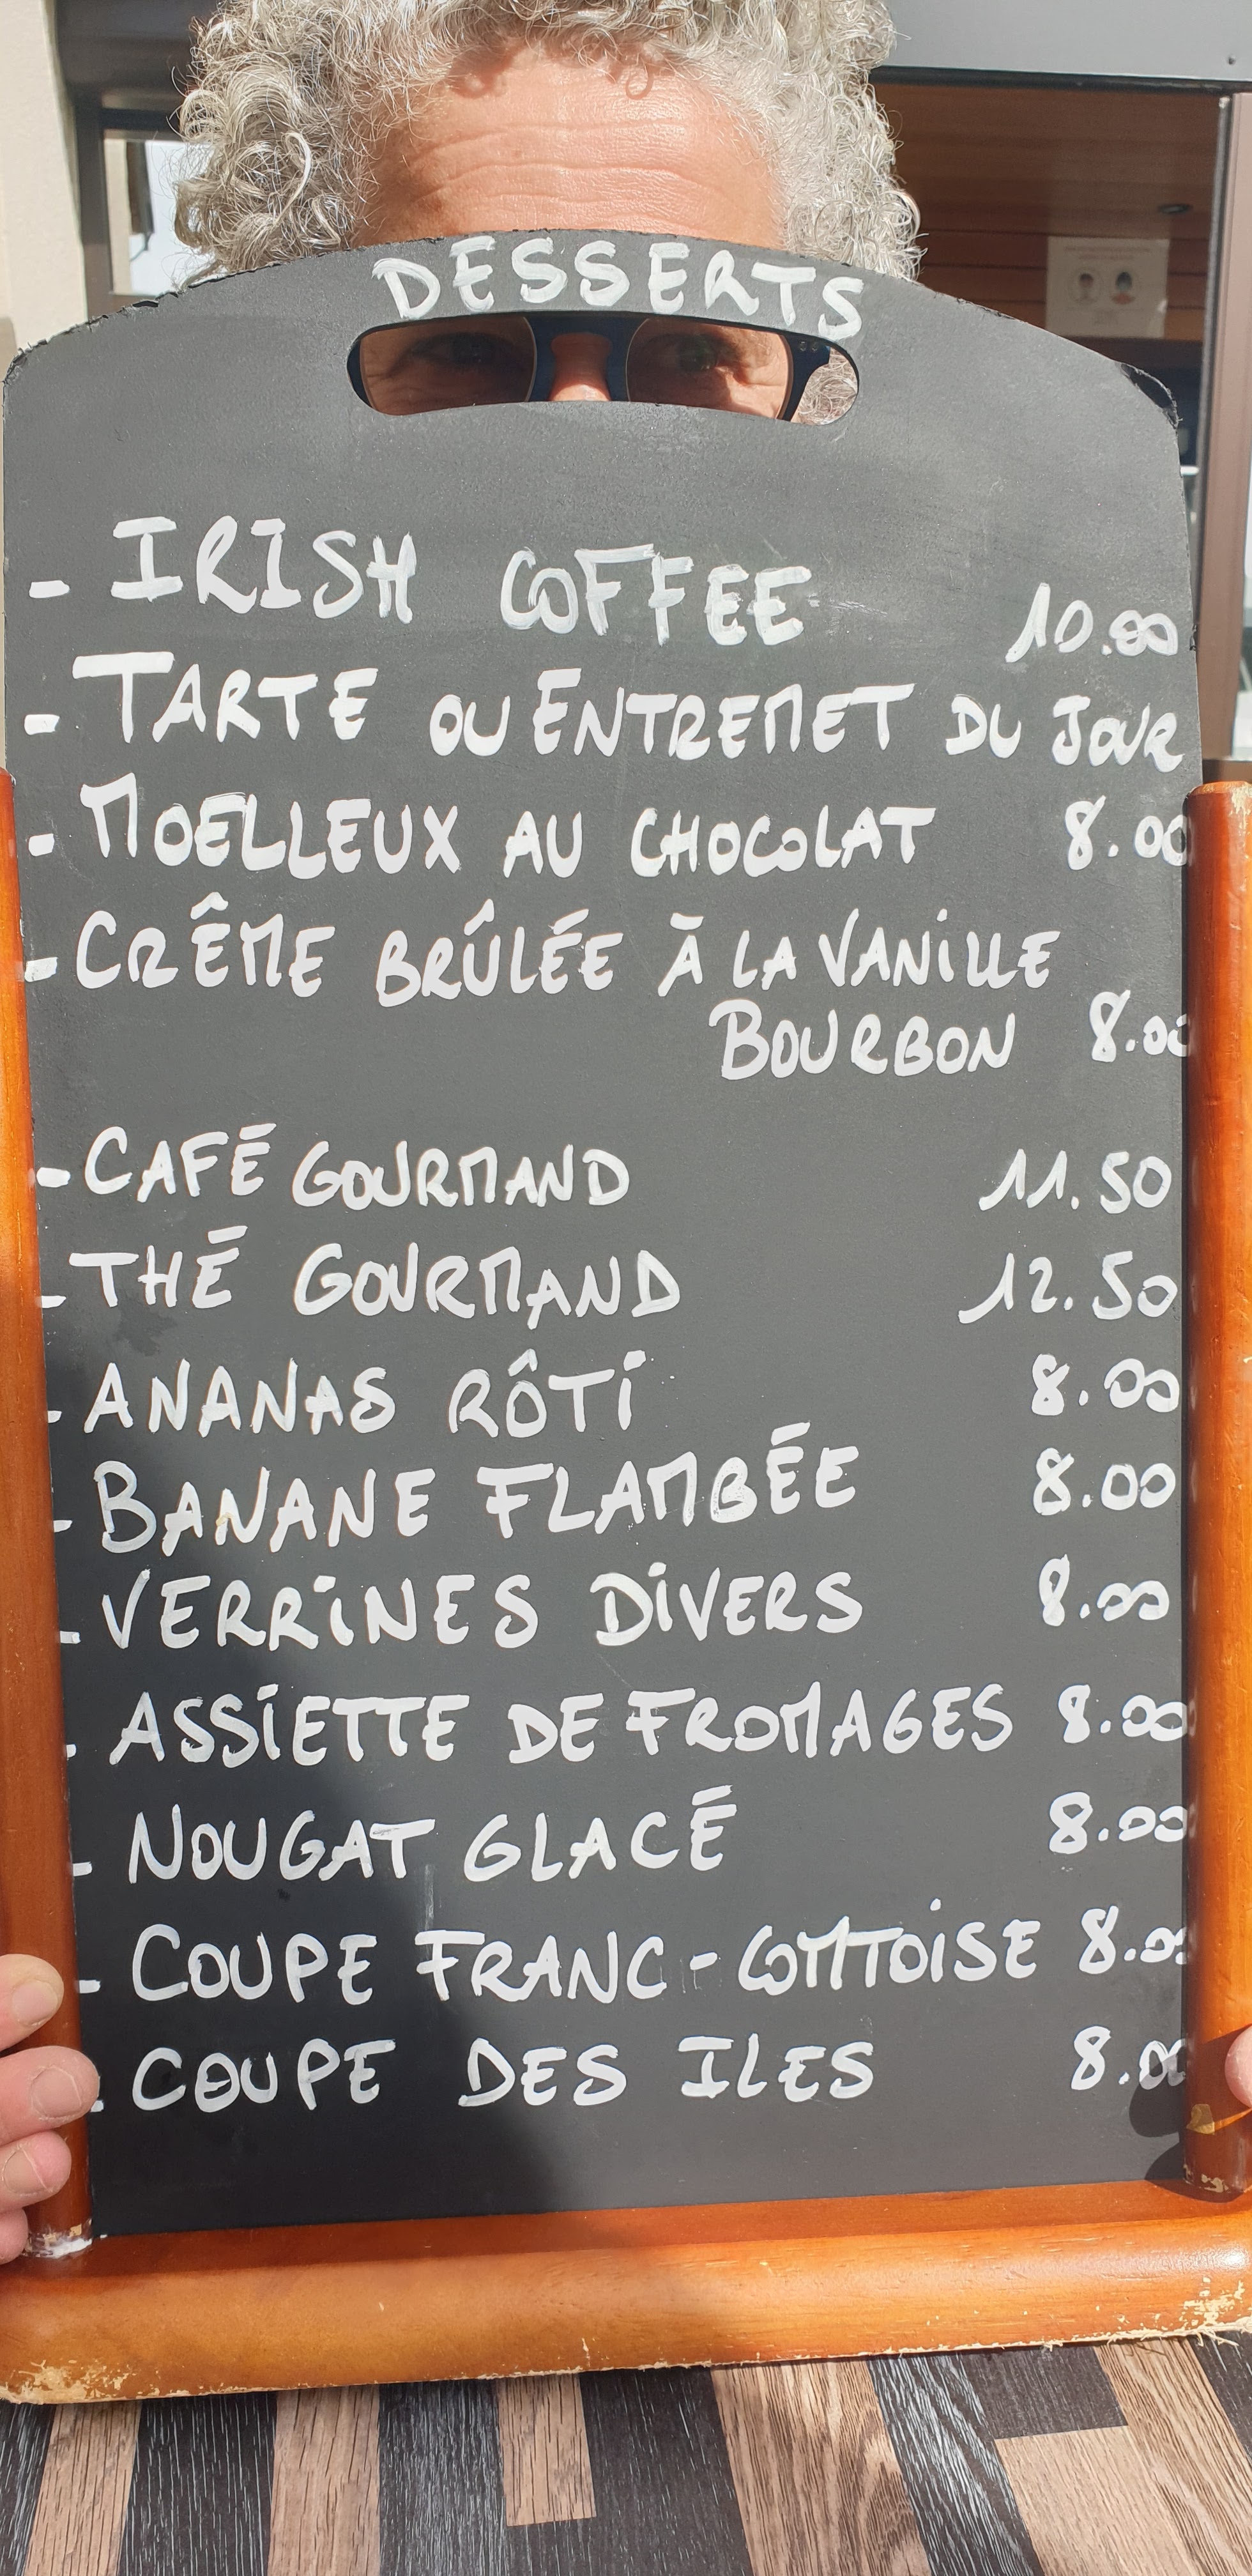 DESSERTS
- IRISH COFFEE 10.00
- TARTE OU ENTREMET DU JOUR
- MOELLEUX AU CHOCOLAT 8.00
- CRÊME BRÛLÉE À LA VANILLE
BOURBON 8.00
- CAFÉ GOURMAND 11.50
- THÉ GOURMAND 12.50
- ANANAS RÔTI 8.00
- BANANE FLAMBÉE 8.00
- VERRINES DIVERS 8.00
- ASSIETTE DE FROMAGES 8.00
- NOUGAT GLACÉ 8.00
- COUPE FRANC-COMTOISE 8.00
- COUPE DES ILES 8.00